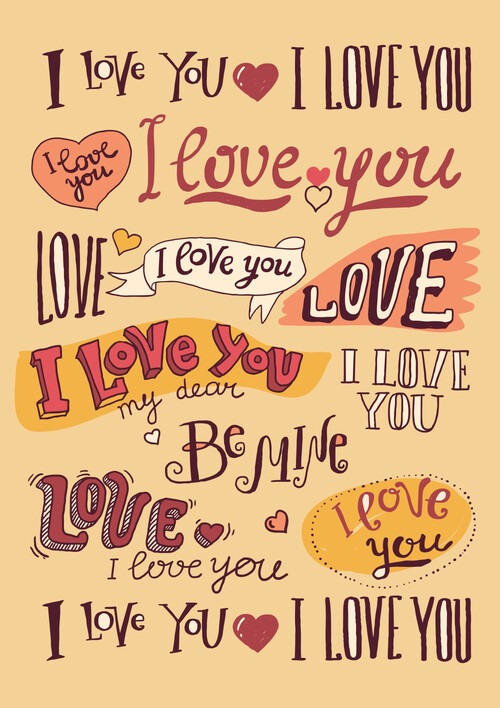 I LOVE YOU I LOVE YOU
I love
you
I love you
LOVE
I love you
LOVE
I LOVE YOU
my dear
I LOVE
YOU
Be MINE
LOVE
I love you
I love
you
I LOVE YOU I LOVE YOU